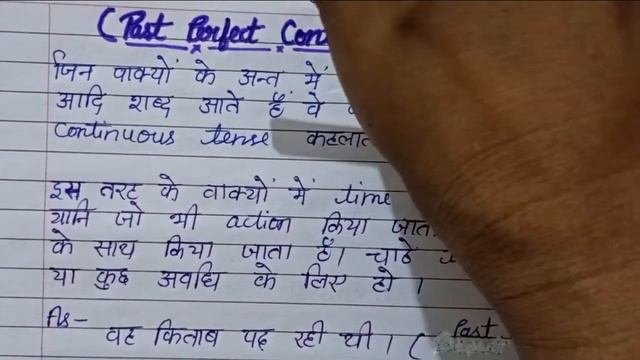 (Past Perfect
जिन वाक्यों के अन्त में
आदि शब्द आते हैं वे
continuous tense
इस तरह के वाक्यों में time
यानि जो भी action किया
के साथ किया जाता है। चाहे
या कुछ अवधि के लिए हो।
As-
वह किताब पढ़ रही थी। ( Past